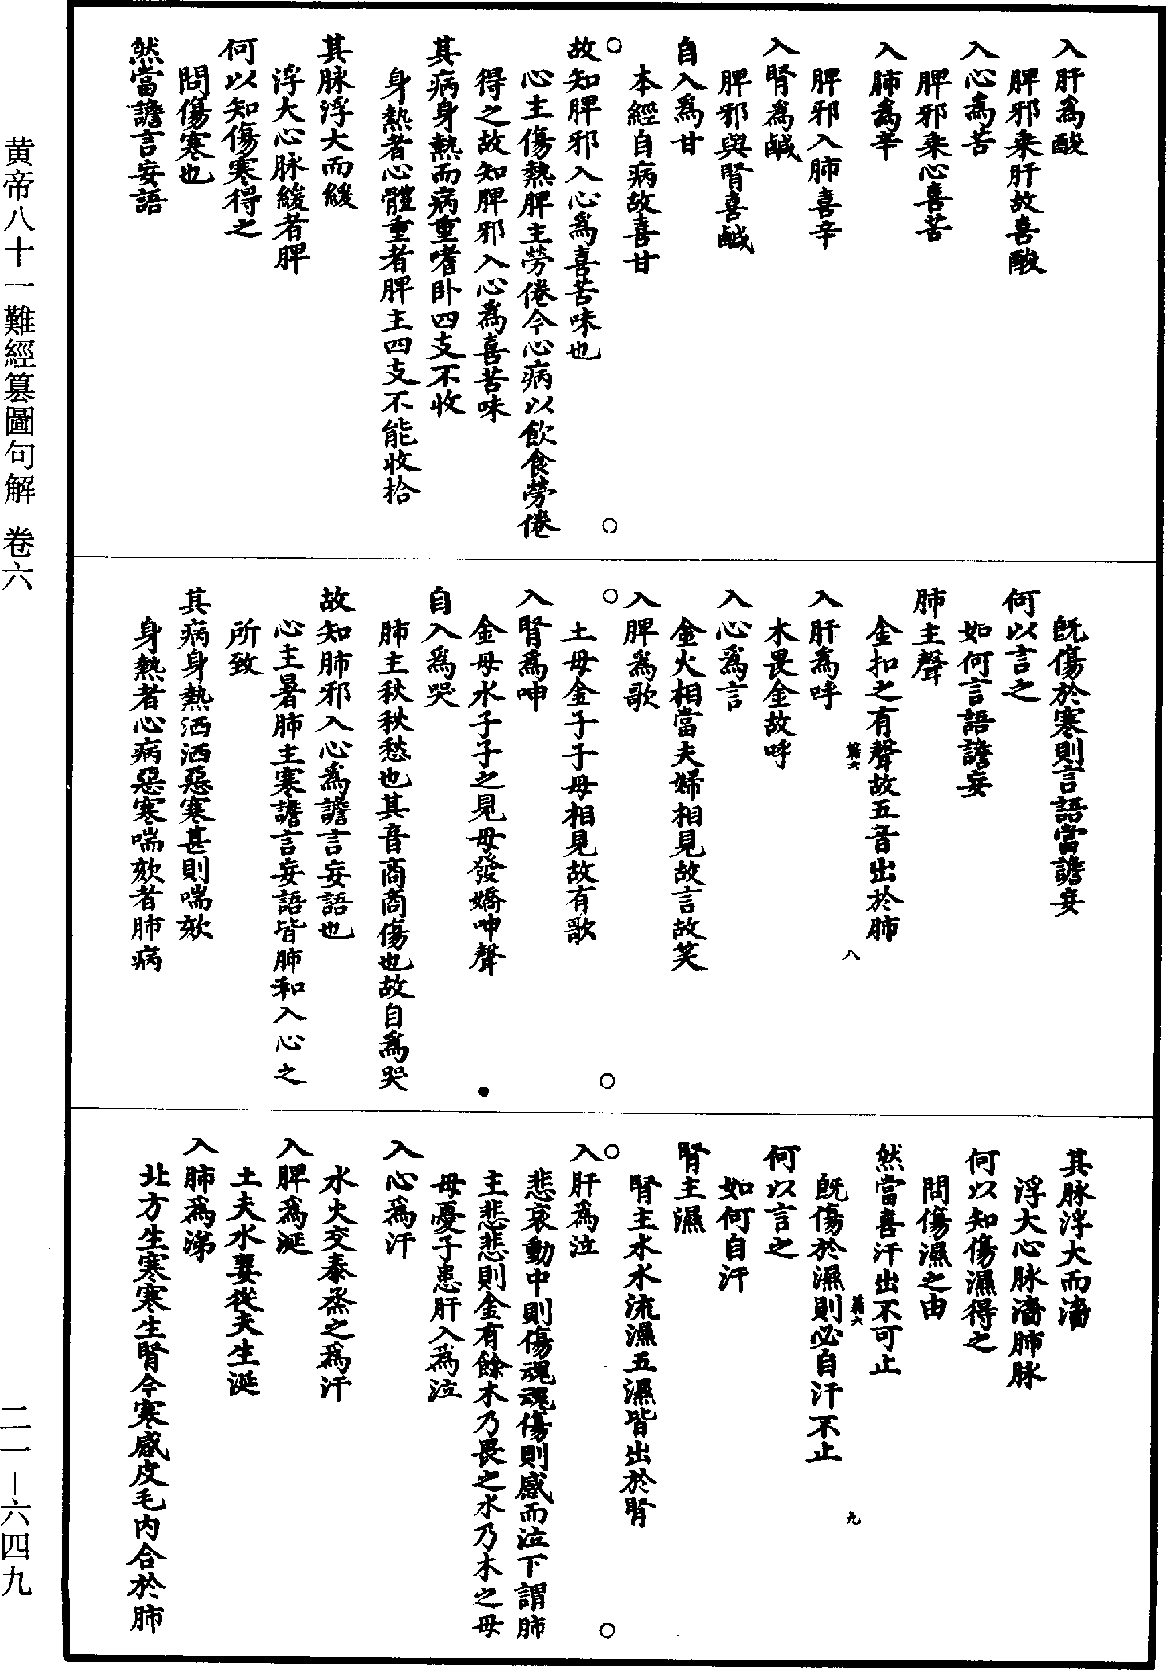 入肝爲酸
脾邪乗肝故喜酸
入心爲苦
脾邪乗心喜苦
入肺爲辛
脾邪入肺喜辛
入腎爲鹹
脾邪與腎喜鹹
自入爲甘
本經自病故喜甘
○
○
故知脾邪入心爲喜苦味也
心主傷熱脾主勞倦今心病以飲食勞倦
得之故知脾邪入心爲喜苦味
其病身熱而病重嗜卧四支不收
身熱者心體重者脾主四支不能收拾
其脉浮大而緩
浮大心脉緩者脾
何以知傷寒得之
問傷寒也
然當譫言妄語
既傷於寒則言語當譫妄
何以言之
如何言語譫妄
肺主聲
金扣之有聲故五音出於肺
難六
八
入肝爲呼
木畏金故呼
入心爲言
金火相當夫婦相見故言故笑
入脾爲歌
○
○
土母金子子母相見故有歌
入腎爲呻
金母水子子之見母發嬌呻聲
自入爲哭
肺主秋秋愁也其音商商傷也故自爲哭
故知肺邪入心爲譫言妄語也
心主暑肺主寒譫言妄語皆肺和入心之
所致
其病身熱洒洒惡寒甚則喘欬
身熱者心病惡寒喘欬者肺病
其脉浮大而濇
浮大心脉濇肺脉
何以知傷濕得之
問傷濕之由
然當喜汗出不可止
既傷於濕則必自汗不止
難六
九
何以言之
如何自汗
腎主濕
腎主水水流濕五濕皆出於腎
○
○
入肝爲泣
悲哀動中則傷魂魂傷則感而泣下謂肺
主悲悲則金有餘木乃畏之水乃木之母
母憂子患肝入爲泣
入心爲汗
水火交泰烝之爲汗
入脾爲涎
土夫水妻從夫生涎
入肺爲涕
北方生寒寒生腎今寒感皮毛内合於肺
黄帝八十一難經纂圖句解 卷六
二一—六四九